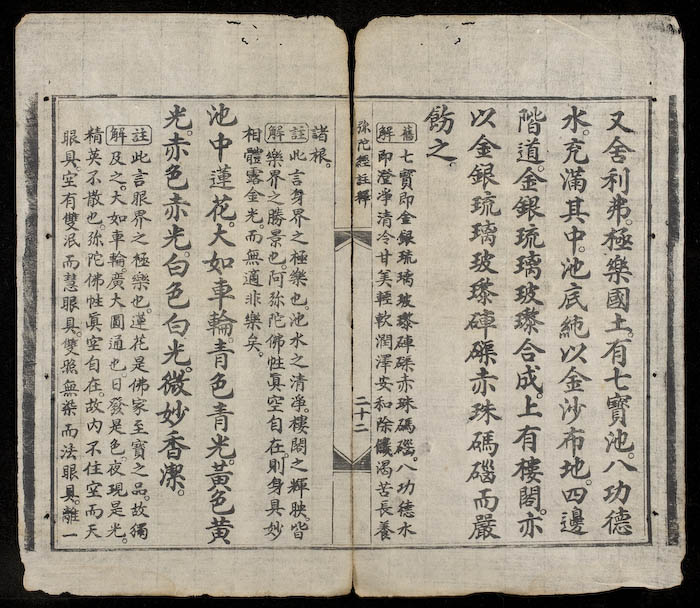 又舍利弗。極樂國土。有七寶池。八功德
水。充滿其中。池底純以金沙布地。四邊
階道。金銀琉璃玻瓈合成。上有樓閣。亦
以金銀琉璃玻瓈硨磲赤珠碼碯而嚴
飭之。
舊七寶即金銀琉璃玻瓈硨磲赤珠碼碯。八功德水
解即澄淨清冷甘美輕軟潤澤安和除饑渴苦長養
弥陀經註釋
二十二
諸根。
註此言身界之極樂也。池水之清淨。樓閣之輝映。皆
解樂界之勝景也。阿弥陀佛性眞空自在。則身具妙
相體露金光。而無適非樂矣。
池中蓮花。大如車輪。青色青光。黃色黃
光。赤色赤光。白色白光。微妙香潔。
註此言眼界之極樂也。蓮花是佛家至寶之品。故獨
解及之。大如車輪。廣大圓通也。日發是色。夜現是光。
精英不散也。弥陀佛性眞空自在。故內不住空而天
眼具。空有雙泯而慧眼具。雙照無染而法眼具。離一